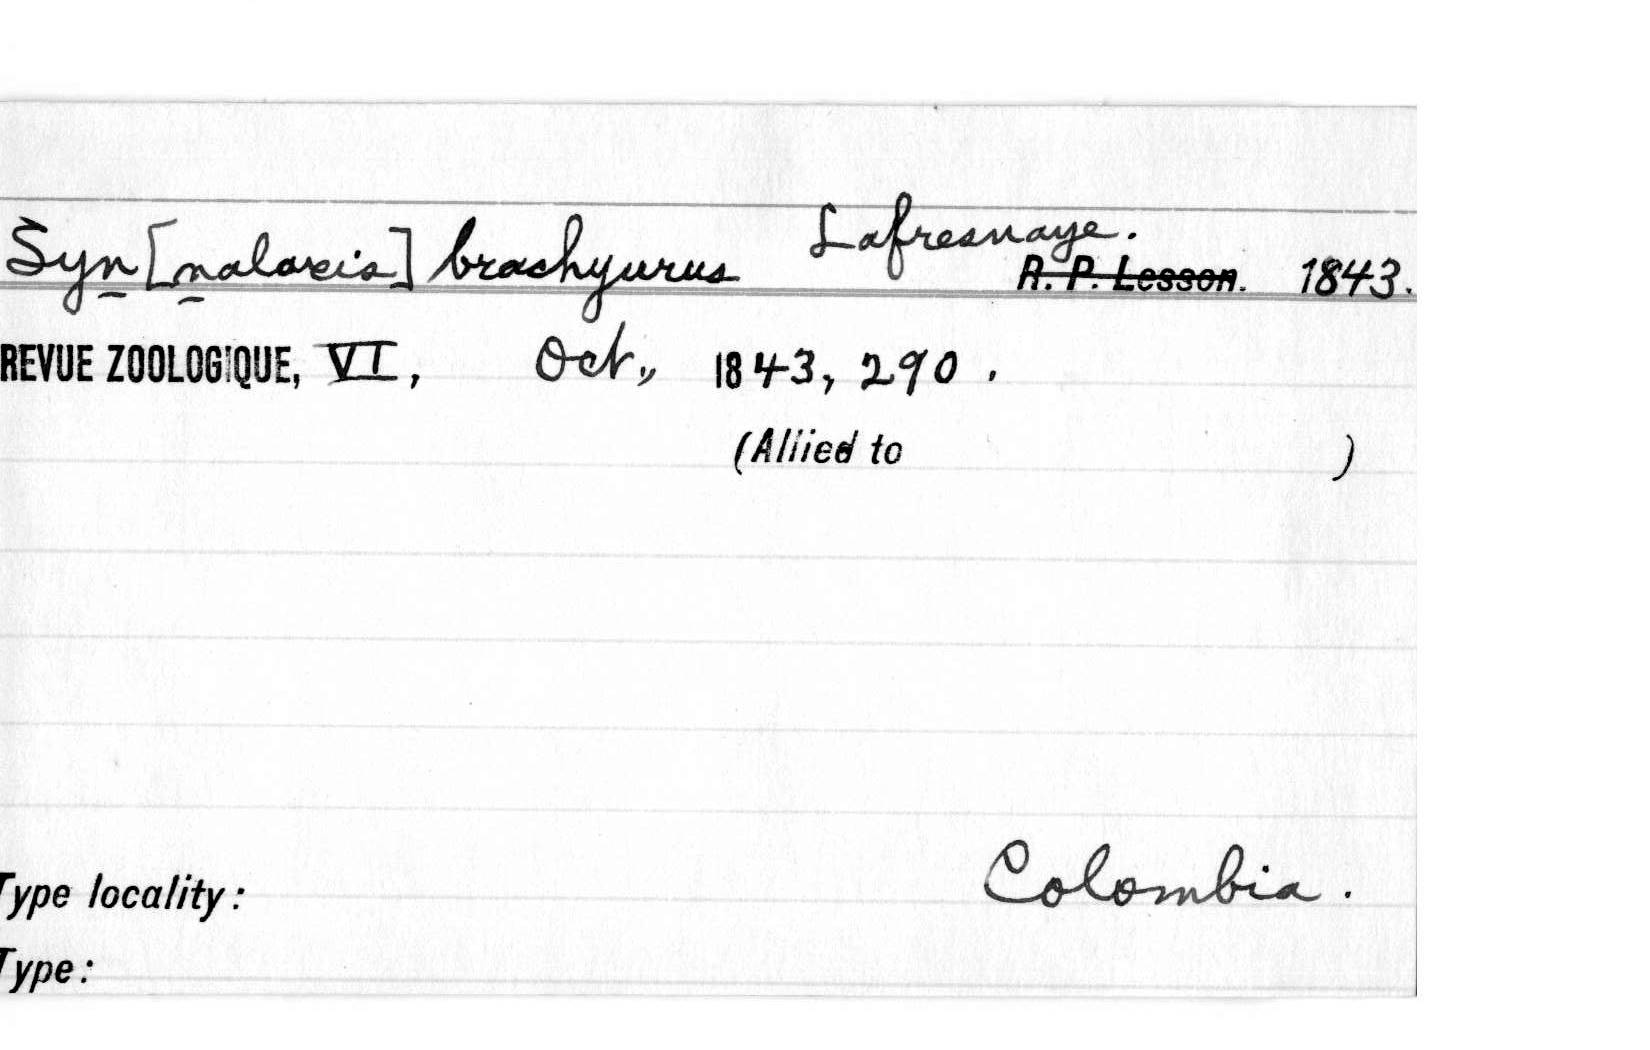 Syn[nalaxis] brachyurus Lafresnaye.
R. P. Lesson. 1843.
REVUE ZOOLOGIQUE, VI, Oct., 1843, 290.
(Allied to )
Type locality: Colombia.
Type: